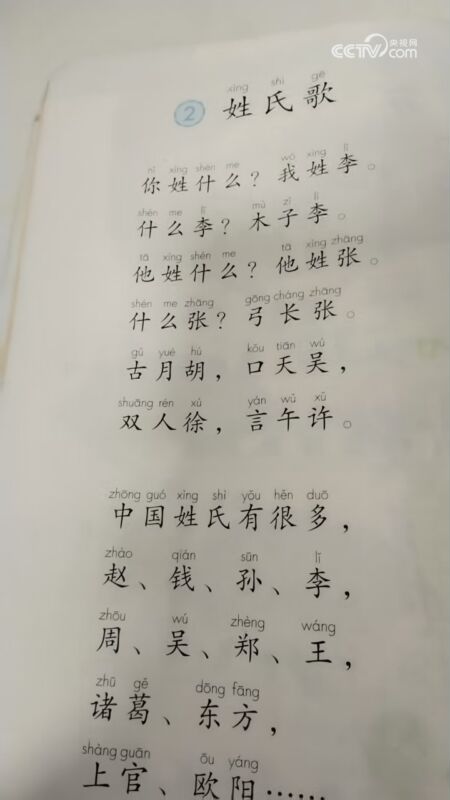 CCTV.com 央视网
xìng shì gē
② 姓氏歌
nǐ xìng shén me wǒ xìng lǐ
你姓什么？我姓李。
shén me lǐ mù zǐ lǐ
什么李？木子李。
tā xìng shén me tā xìng zhāng
他姓什么？他姓张。
shén me zhāng gōng cháng zhāng
什么张？弓长张。
gǔ yuè hú kǒu tiān wú
古月胡，口天吴，
shuāng rén xú yán wǔ xǔ
双人徐，言午许。
zhōng guó xìng shì yǒu hěn duō
中国姓氏有很多，
zhào qián sūn lǐ
赵、钱、孙、李，
zhōu wú zhèng wáng
周、吴、郑、王，
zhū gě dōng fāng
诸葛、东方，
shàng guān ōu yáng
上官、欧阳……